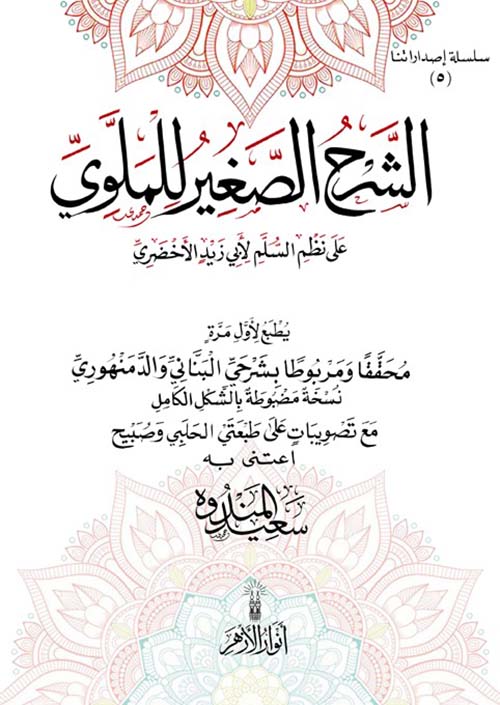 سلسلة إصداراتنا
(٥)
الشَّرْحُ الصَّغِيرُ لِلْمَلَّوِيِّ
عَلَى نَظْمِ السُّلَّمِ لِأَبِي زَيْدٍ الأَخْضَرِيِّ
يُطْبَعُ لِأَوَّلِ مَرَّةٍ
مُحَقَّقًا وَمَرْبُوطًا بِشَرْحَيِّ الْبَنَّانِيِّ وَالدَّمَنْهُورِيِّ
نُسْخَةٌ مَضْبُوطَةٌ بِالشَّكْلِ الْكَامِلِ
مَعَ تَصْوِيبَاتٍ عَلَى طَبْعَتَيِ الحَلَبِي وَصُبَيْح
اعتنى به
سَعِيد المَنْدُوه
أَنْوَارُ الأَزْهَر